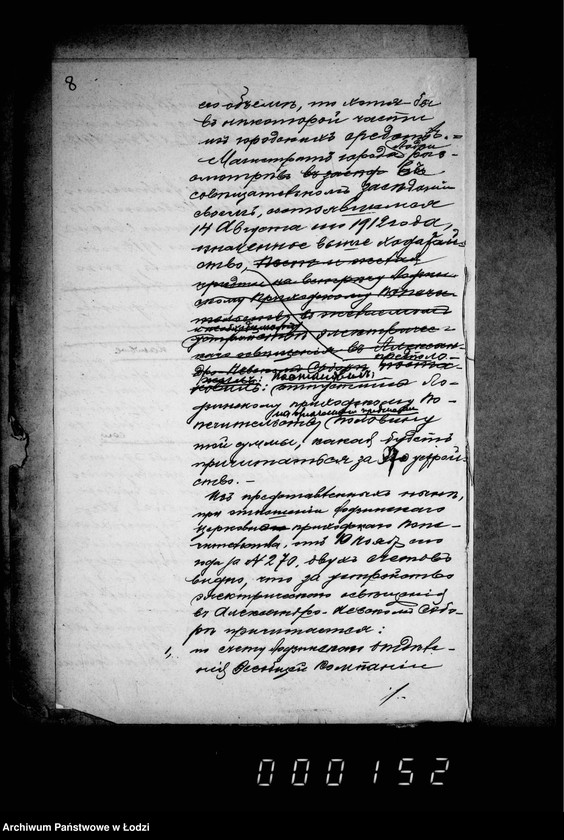 8
его объемѣ, то хотя бы
въ нѣкоторой части
изъ городскихъ средствъ.=
Магистратъ города Лодзи раз-
смотрѣвъ въ
совѣщательномъ засѣданіи
своемъ, состоявшемся
14 Августа сего 1912 года,
означенное выше ходатай-
ство,
скому приходскому попечи-
тельству
электричес-
каго освѣщенія въ Алексан-
дро-Невскомъ Соборѣ, поста-
предполо-
новилъ: постановилъ: отпустить Ло-
дзинскому приходскому По-
печительству половину
той суммы, какая будетъ
причитаться за устрой-
ство. —
Изъ представленныхъ нынѣ,
при отношеніи Лодзинскаго
церковно приходскаго Попе-
чительства, отъ 10 Ноября сего
года за № 270, двухъ счетовъ
видно, что за устройство
электрическаго освѣщенія
въ Александро-Невскомъ Собо-
рѣ причитается:
1, по счету Лодзинскаго отдѣле-
нія Всеобщей Компаніи
·/.
000152
Archiwum Państwowe w Łodzi